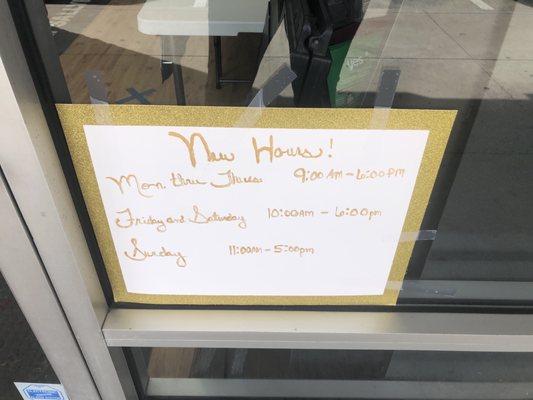 New Hours!
Mon. thru Thurs. 9:00 AM - 6:00 PM
Friday and Saturday 10:00AM - 6:00pm
Sunday 11:00AM - 5:00pm